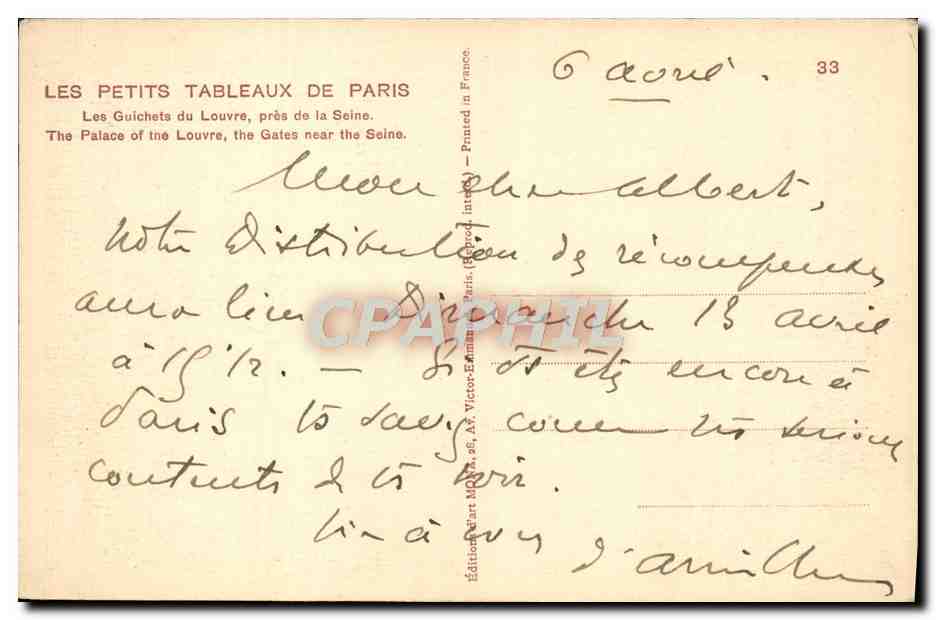 6 avril.
33
LES PETITS TABLEAUX DE PARIS
Les Guichets du Louvre, près de la Seine.
The Palace of the Louvre, the Gates near the Seine.
Mon cher Albert,
Notre Distribution des récompenses
aura lieu Dimanche 13 avril
à 15 1/2. — Si vs êtes encore à
Paris vs savez comme ns serions
contents de vs voir.
Bien à vous
Éditions d'art MONA, 26, Av. Victor-Emmanuel, Paris. (Reprod. interd.) — Printed in France.
CPAPHIL